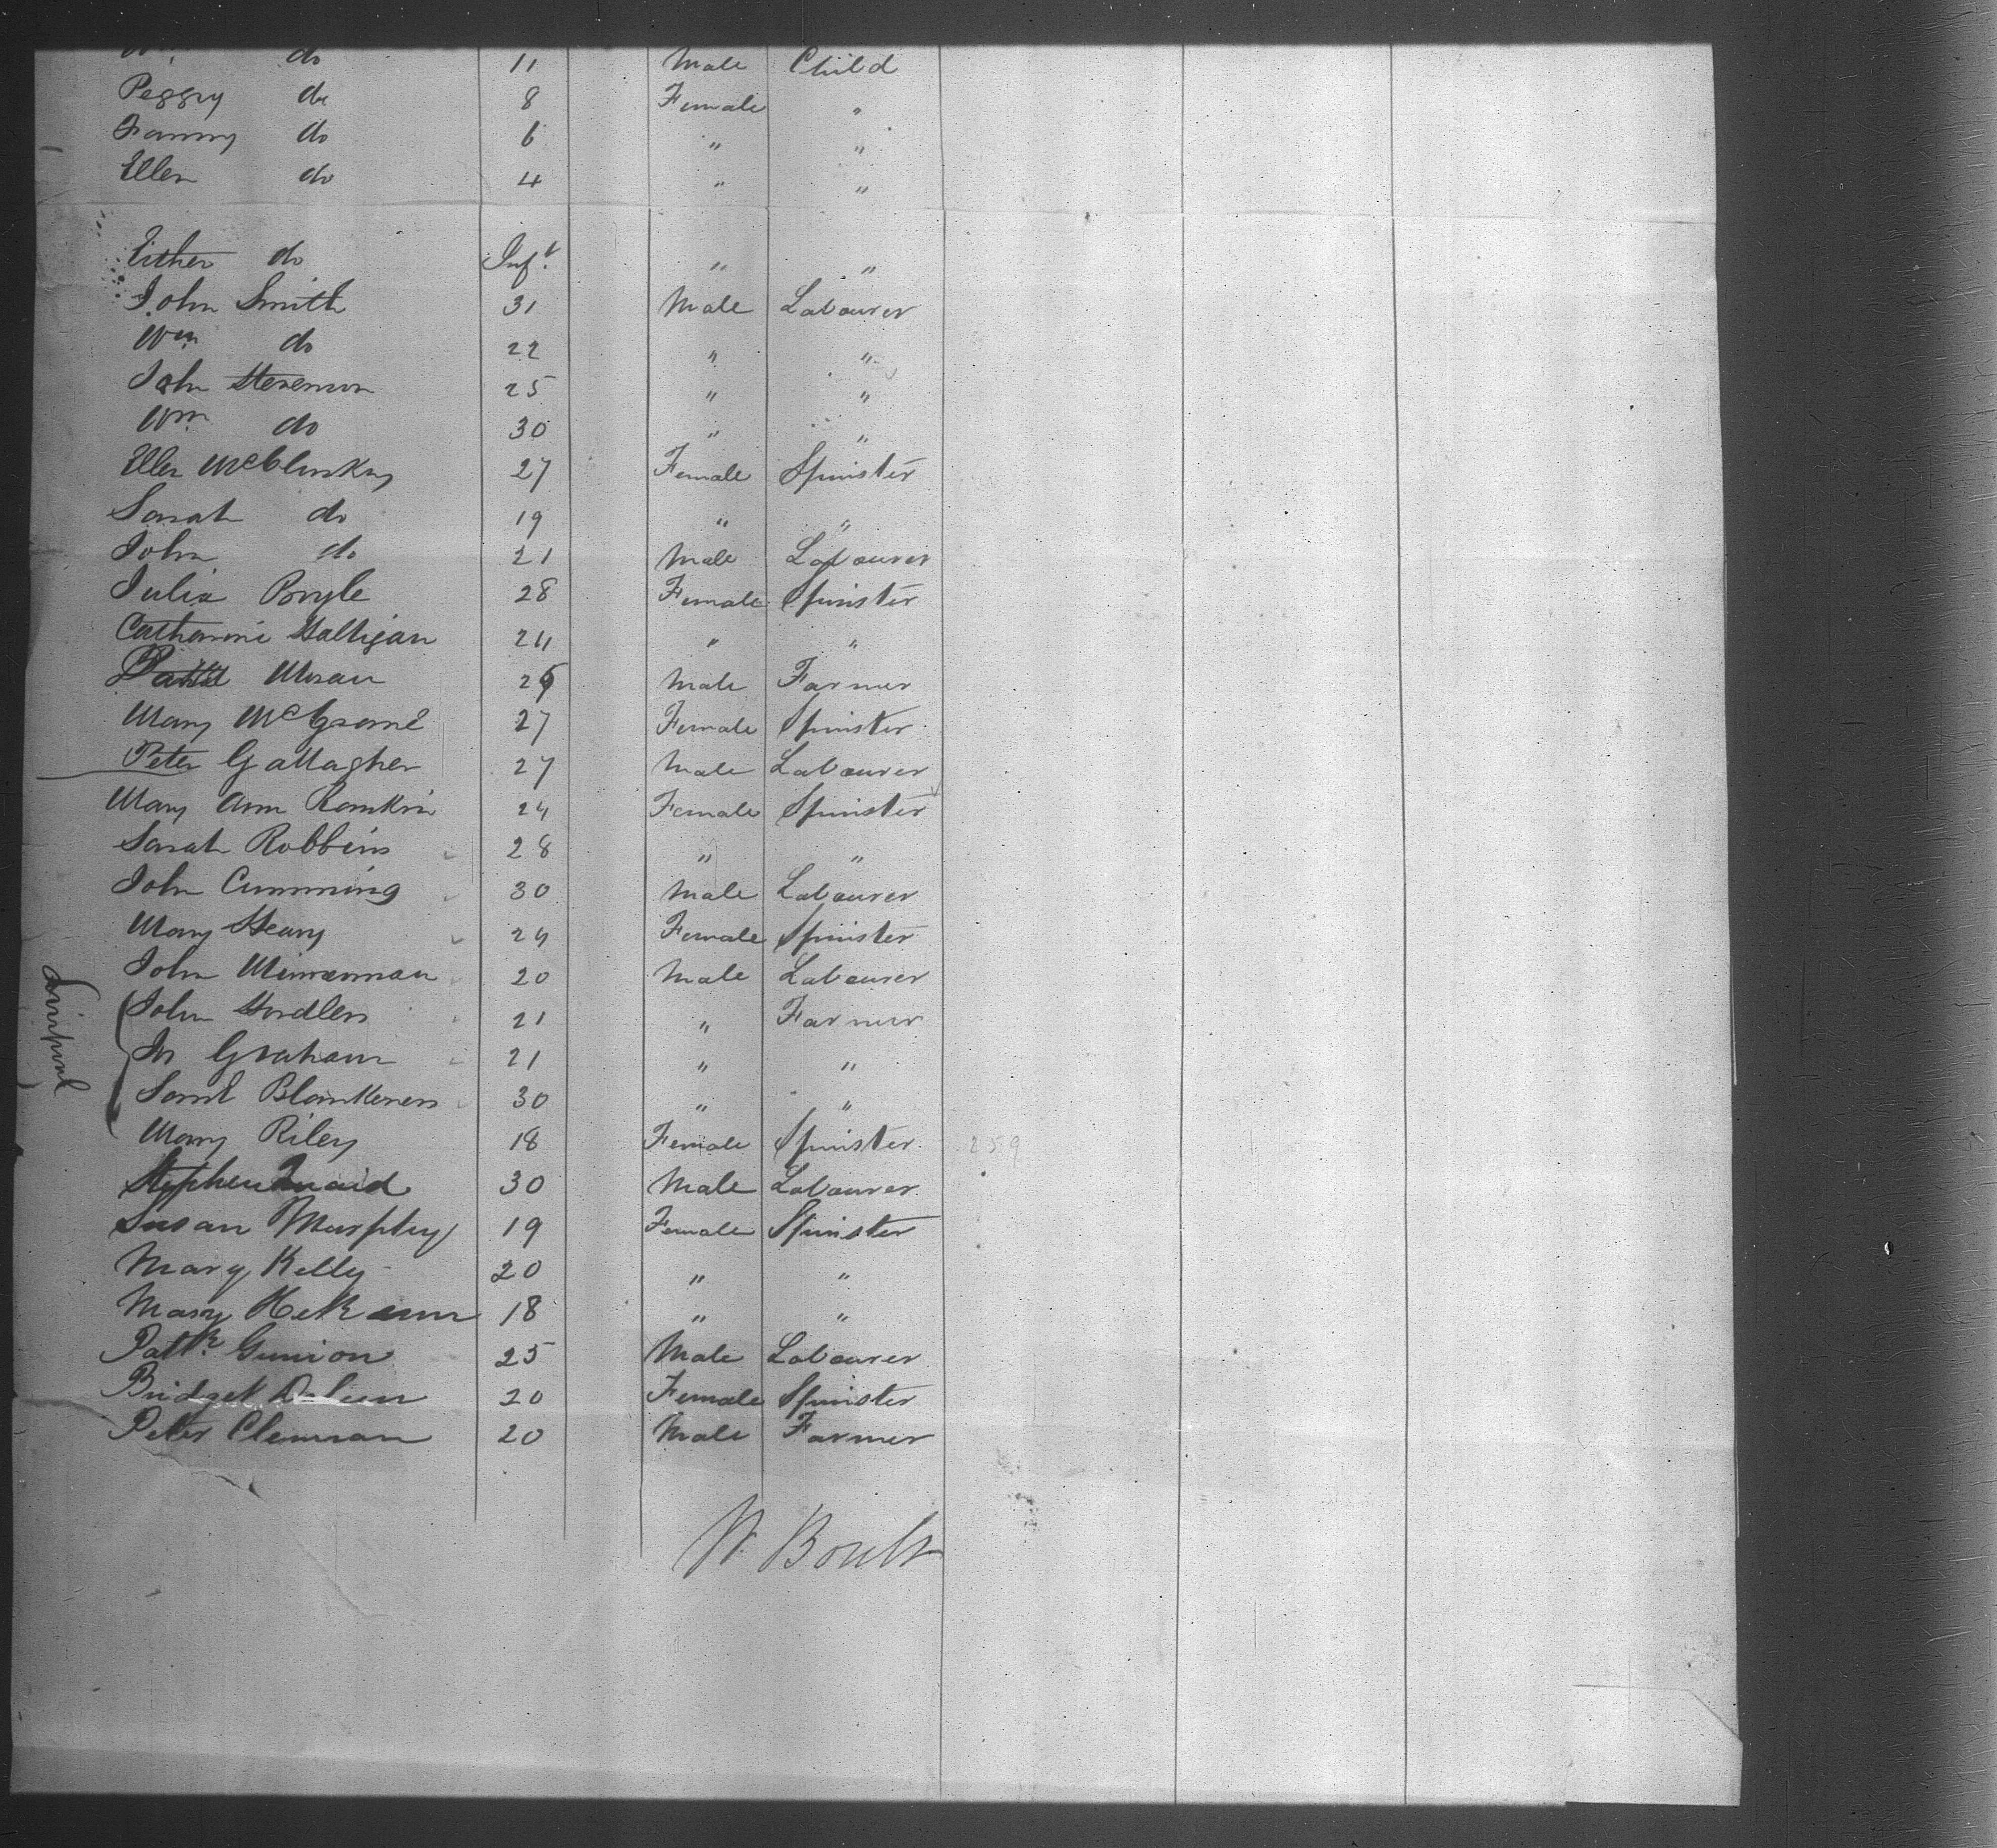 Wm. do 11 Male Child
Peggy do 8 Female "
Fanny do 6 " "
Ellen do 4 " "
Esther do Inft. " "
John Smith 31 Male Labourer
Wm do 22 " "
John Stevenson 25 " "
Wm do 30 " "
Ellen McCluskey 27 Female Spinster
Sarah do 19 " "
John do 21 Male Labourer
Julia Boyle 28 Female Spinster
Catharine Halligan 24 " "
Moran Male Farmer
Mary 27 Female Spinster
Peter Gallagher 27 Male Labourer
Mary Ann Rankin 24 Female Spinster
Sarah Robbins 28 " "
John Cumming 30 Male Labourer
Mary Heany 24 Female Spinster
John 20 Male Labourer
John 21 " Farmer
Graham 21 " "
Saml 30 " "
Mary Riley 18 Female Spinster 259
Stephen 30 Male Labourer
Susan Murphy 19 Female Spinster
Mary Kelly 20 " "
Mary 18 " "
Pattk. 25 Male Labourer
Bridget 20 Female Spinster
Peter 20 Male Farmer
W. Boult